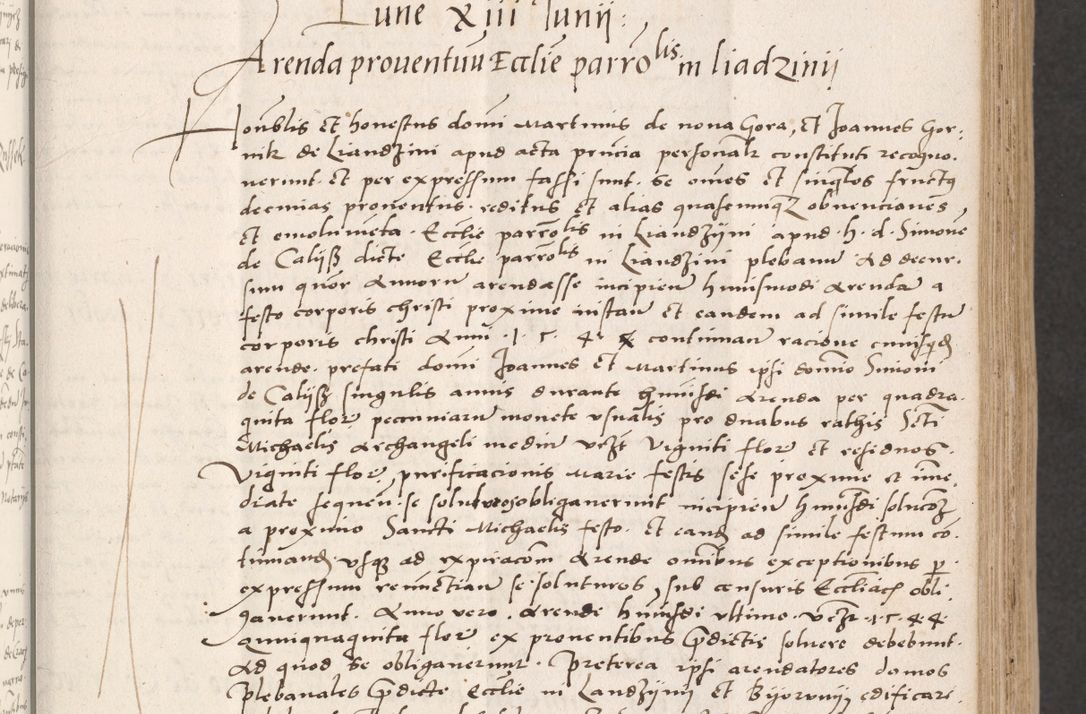 Lune xiii Junii:
Arenda proventuū Ecclie parrolis in liadzinij
Honblis et honestus domi Martinus de nova Gora, et Joannes Gor-
nik de Liandzini apud acta pnćia personalr constituti recogno-
verunt. et per expressum fassi sunt. se omēs et singłos fructꝯ
decimas proventus. reditus et alias quascumqꝫ obvenciones
et emolumēta. Ecclie parrolis in Liandzÿni apud. h. d. Simonē
de Calijß dicte Ecclie parrolis in Liandzini plebanū ad decur-
sum quor annorū arendasse incipien huiusmodi arendā a
festo corporis christi proxime instan et eandem ad simile festū
corporis christi Anni .1.5.4. continuan racione cuiusqd
arende. prefati domi Joannes et Martinus ipsi domīo Simoni
de Calijß singulis annis durante hmūsdi arenda per quadra-
ginta flor pecuniarū monete usualis pro duabus rathis Scti
Michaelis Archangeli mediū vczt viginti flor et residuos
viginti flor, purificacionis Marie festis sese proxime et ime-
diate sequēn. se soluturos obliganerunt incipien hmūsdi solucōꝫ
a proximo Sancti Michaelis festo. et eandꝫ ad simile festum cō-
tinuandꝫ. usqꝫ ad expiracom arende omibus excepcionibus p
expressum renunctian se. soluturos, sub censuris Eccliach obli-
ganerunt. Anno vero. arende hmūsdi ultimo. vczt .1.5.44
quinquaginta flor ex proventibus pdictis soluere debebunt.
Ad quod se obliganerunt. Preterea ipsi arendatores domos
plebanales pdicte Ecclie in Landzijnij et Bijorunij edificari